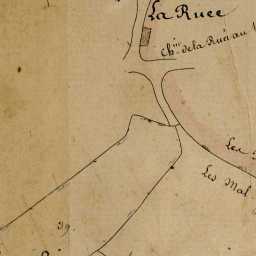 La Ruée
Ch.in de la Ruée au
Les
Les Mal
39.